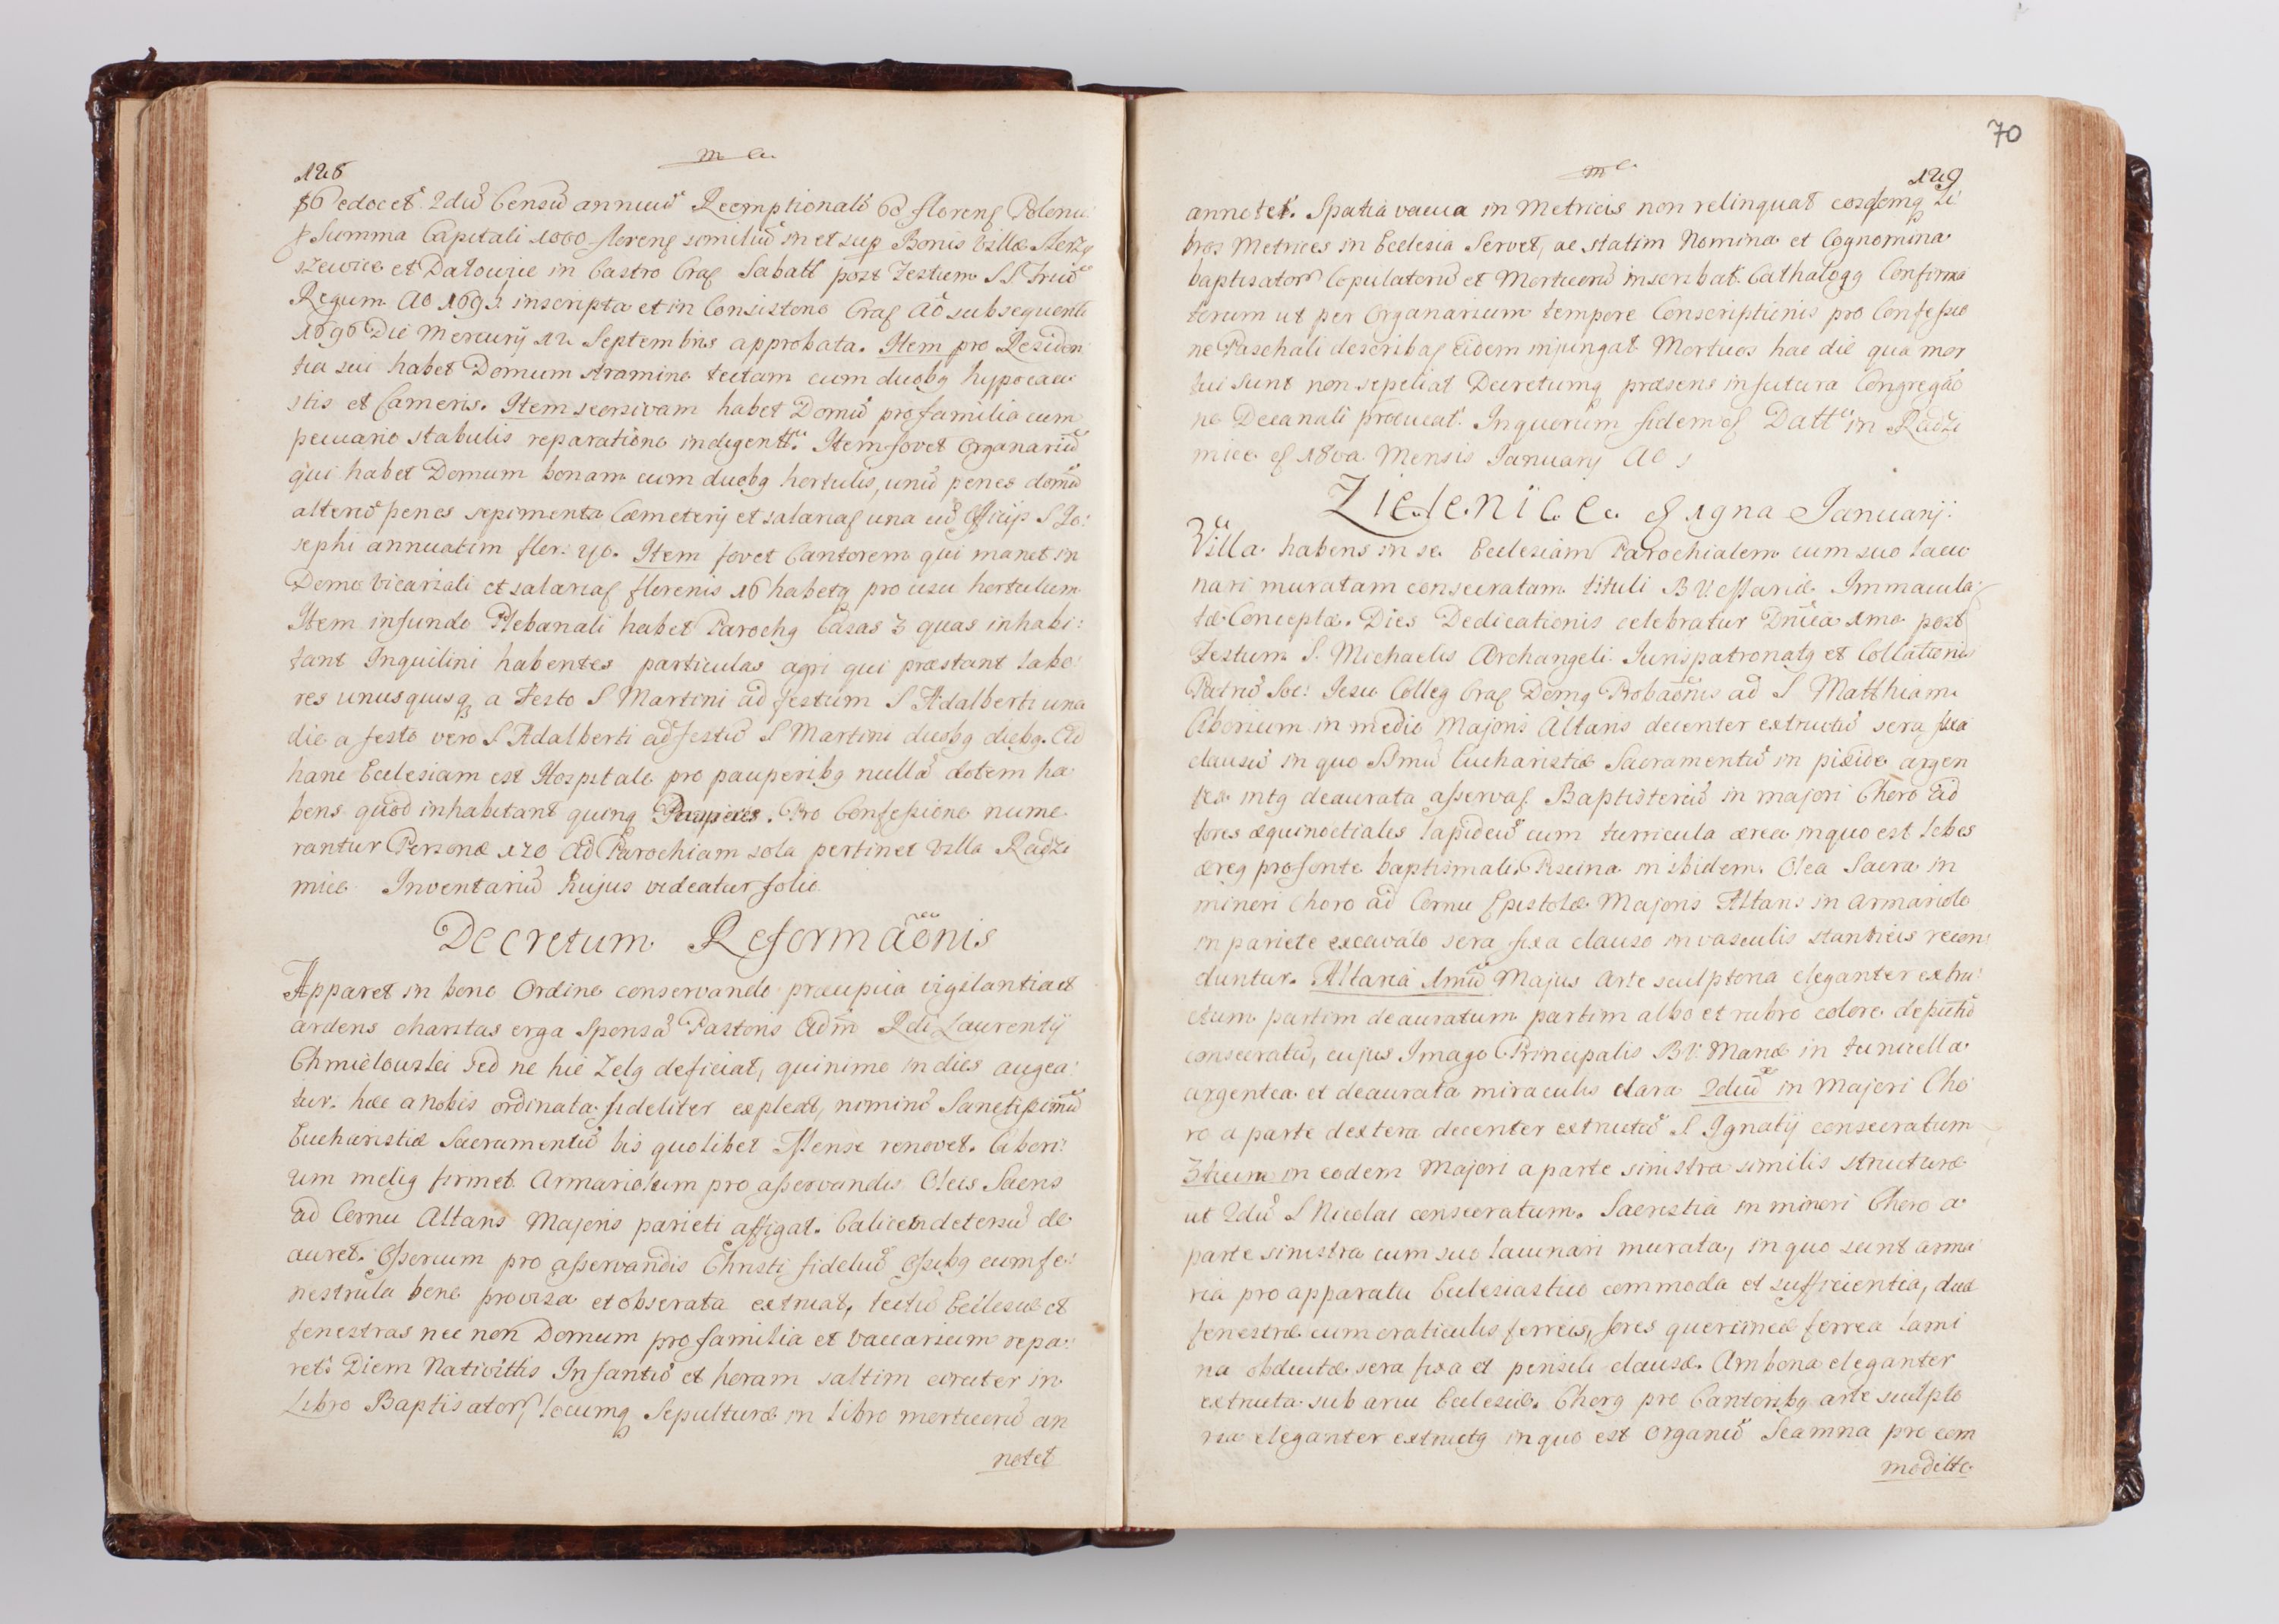 128
86 edocet. 2dũ Censũ annuũ Reemptionalẽ 60 floren. Polon.
Summa Capitali 1000 floren. similiũ in et sup Bonis Villæ
szewice et Datowice in Castro Crac. Sabatt post Festum SS. Triũ
Regum Ao 1695 inscripta et in Consistorio Crac. Aõ subsequenti
1696 Die Mercurij 12 Septembris approbata. Item pro Residen
tia sui habet Domum stramine tectam cum duobq hypocau
stis et Cameris. Item seorsivam habet Domũ pro familia cum
pecuario stabulis reparatione indigentt. Item fovet Organariũ
qui habet Domum bonam cum duobq hortulis, unũ penes domũ
alterũ penes sepimenta Cæmeterij et salariat. una cũ Officijs S Jo:
sephi annuatim flor: 40. Item fovet Cantorem qui manet in
Domo Vicariali et salariat. florenis 16 habetq pro usu hortulum
Item in fundo Plebanali habet Parochq Casas 3 quas inhabi:
tant Inquilini habentes particulas agri qui præstant labo:
res unusquisq a Festo S Martini ad festum S Adalberti una
die a festo vero S Adalberti ad festũ S Martini duobq diebq. Ad
hanc Ecclesiam est Hospitale pro pauperibq nullã dotem ha
bens quod inhabitant quinq Pauperes. Pro Confessione nume
rantur Personæ 170 Ad Parochiam sola pertinet Villa Radzi
mice Inventariũ hujus videatur folio
Decretum Reformãonis
Apparet in bono Ordine conservando præcipua vigilantia et
ardens charitas erga Sponsã Pastoris Adm Rdi Laurentij
Chmielouski sed ne hic Zelq deficiat, quinimo in dies augea:
tur. hæc a nobis ordinata fideliter expleat, nominõ Sanctissimũ
Eucharistiæ Sacramentũ bis quolibet Mense renovet. Cibori:
um meliq firmet Armariolum pro asservandis Oleis Sacris
ad Cornu Altaris Majoris parieti affigat. Calicem detersũ de
auret. Osserium pro asservandis Christi fideliũ Ossibq cum fe:
nestrula bene provisa et obserata extruat, tectũ Ecclesiæ et
fenestras nec non Domum pro familia et Vaccarium repa:
ret. Diem Nativittis Infantiũ et horam saltim circiter in
Libro Baptisator, locumq Sepulturæ in Libro mortuorũ an
notet
70
129
annotet. Spatia vacua in Metricis non relinquat eosdemq Li
bros Metrices in Ecclesia Servet, ac statim Nomina et Cognomina
baptisator Copulatorũ et Mortuorũ inscribat. Cathalogq Confirma
torum ut per Organarium tempore Conscriptionis pro Confessio
ne Paschali describat. eidem injungat Mortuos hac die qua mor
tui sunt non sepeliat Decretumq præsens in futura Congregãõ
ne Decanali producat. In quorum fidem Datt in Radzi
mice 18va Mensis Januarij Ao
Zielenice 19na Januarij:
Villa habens in se Ecclesiam Parochialem cum suo lacu
nari muratam consecratam tituli B V. Mariæ Immacula:
tæ Conceptæ. Dies Dedicationis celebratur Dnica 1ma post
Festum S. Michaelis Archangeli. Jurispatronatq et Collationis
Patrũ Soc: Jesu Colleg Crac. Domq Probaõnis ad S Matthiam
Ciborium in medio Majoris Altaris decenter extructũ sera fixa
clausũ in quo SSmũ Eucharistiæ Sacramentũ in pixide argen
tea intq deaurata asservat. Baptisteriũ in majori Choro ad
fores æquinoctiales lapideũ cum turricula ærea in quo est lebes
æreq pro fonte baptismali. Piscina in ibidem. Olea Sacra in
minori Choro ad Cornu Epistolæ Majoris Altaris in armariolo
in pariete excavato sera fixa clauso in vasculis stanneis recon:
duntur. Altaria 1mũ Majus arte sculptoria eleganter extru:
ctum partim deauratum partim albo et rubro colore depictũ
consecratũ, cujus Imago Principalis B V. Mariæ in tunicella
argentea et deaurata miraculis clara 2dũ in Majori Cho
ro a parte dextera decenter extructũ S Ignatij consecratum
3tium in eodem Majori a parte sinistra similis structuræ
ut 2dũ S Nicolai consecratum. Sacristia in minori Choro a
parte sinistra cum suo lacunari murata, in quo sunt arma
ria pro apparatu Ecclesiastico commoda et sufficientia, duæ
fenestræ cum craticulis ferreis, fores quercineæ ferrea lami
na obductæ sera fixa et pensili clausæ. Ambona eleganter
extructa sub arcu Ecclesiæ. Chorq pro Cantoribq arte sculpto
ria eleganter extructq in quo est Organũ Scamna pro com
moditte